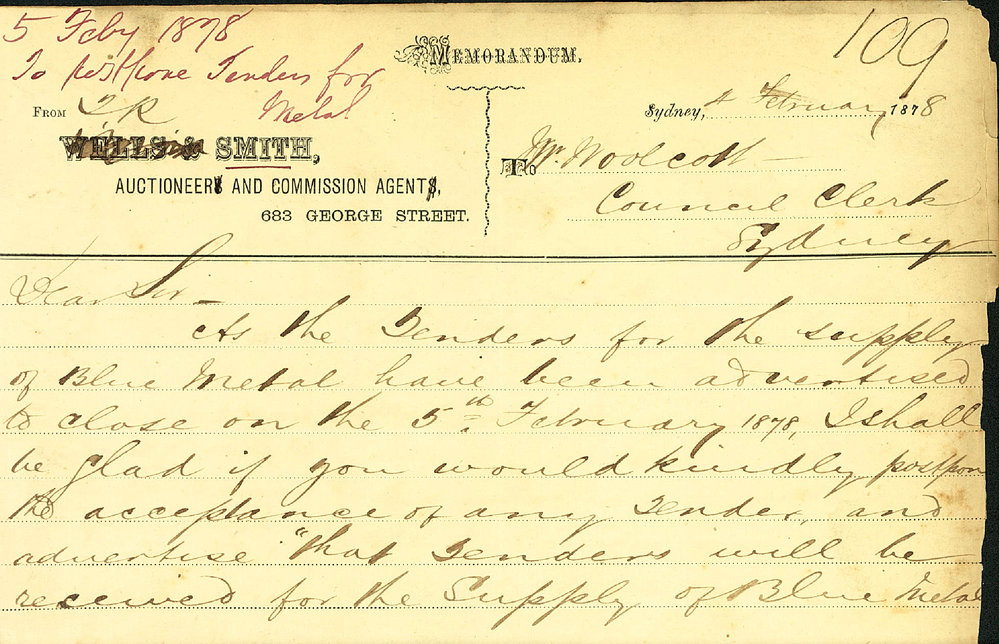 5 Feby 1878
To postpone Tenders for
Metal
109
MEMORANDUM.
FROM T R
WELLS & SMITH,
AUCTIONEERS AND COMMISSION AGENTS,
683 GEORGE STREET.
Sydney, 4 February 1878
To Mr. Woolcott
Council Clerk
Sydney
Dear Sir
As the Tenders for the supply
of Blue Metal have been advertised
to close on the 5th February 1878, I shall
be glad if you would kindly postpone
the acceptance of any Tender, and
advertise "that Tenders will be
received for the Supply of Blue Metal